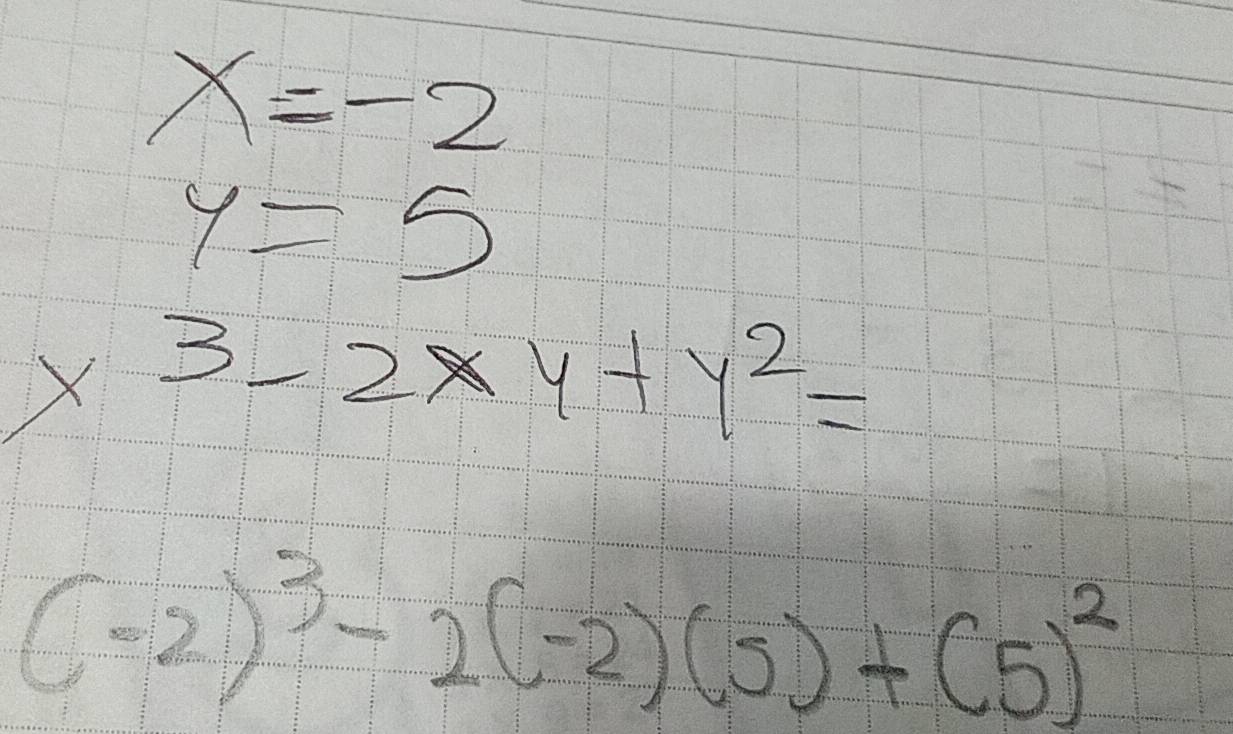 x = -2
y = 5
x³ - 2xy + y² =
(-2)³ - 2(-2)(5) + (5)²